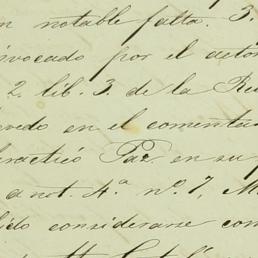 n notable falta. 3.
nvocado por el actor
2. lib. 3. de la Re
vedo en el comenta
practicó Paz en su
a not. 4.ª nº. 7, M
ido considerarse com